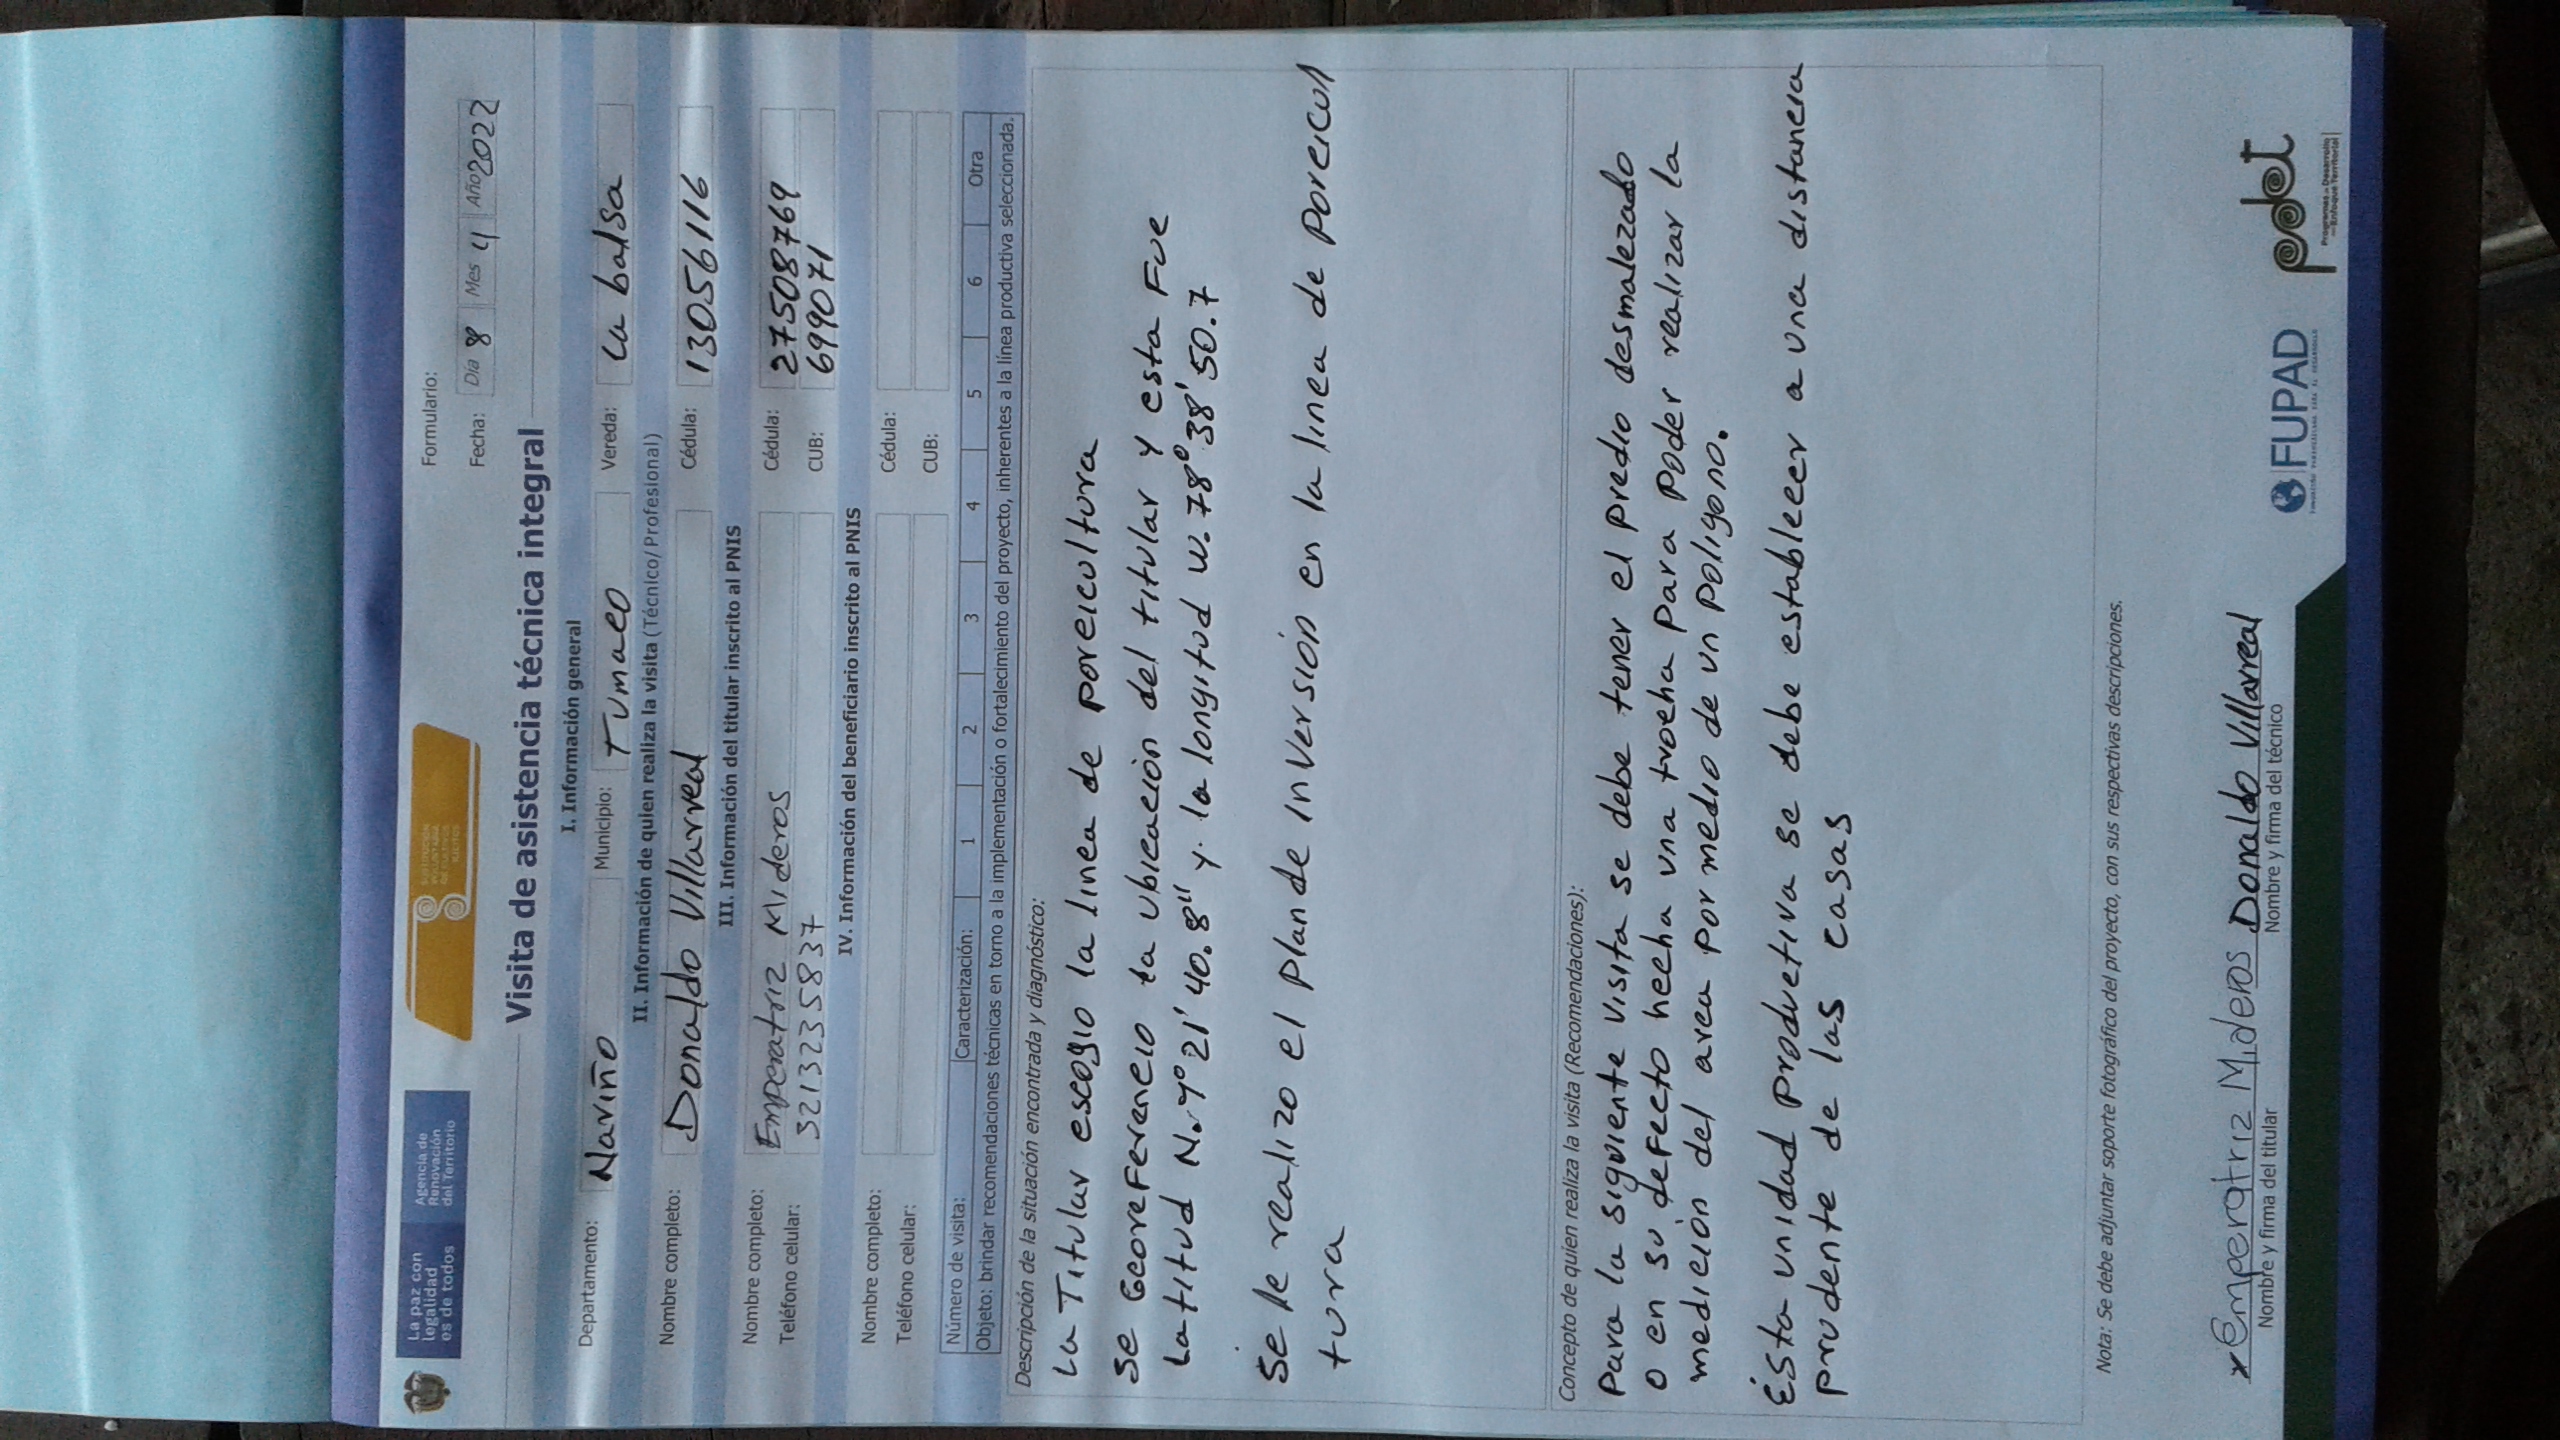 La paz con
legalidad
es de todos
Agencia de
Renovación
del Territorio
SUSTITUCIÓN
VOLUNTARIA
DE CULTIVOS
ILÍCITOS
Formulario:
Fecha: Día 8 Mes 4 Año 2022
Visita de asistencia técnica integral
I. Información general
Departamento: Nariño Municipio: Tumaco Vereda: La balsa
II. Información de quien realiza la visita (Técnico/Profesional)
Nombre completo: Donaldo Villarreal Cédula: 13056116
III. Información del titular inscrito al PNIS
Nombre completo: Emperatriz Mideros Cédula: 277508769
Teléfono celular: 3213235837 CUB: 699071
IV. Información del beneficiario inscrito al PNIS
Nombre completo: Cédula:
Teléfono celular: CUB:
Número de visita: Caracterización: 1 2 3 4 5 6 Otra
Objeto: brindar recomendaciones técnicas en torno a la implementación o fortalecimiento del proyecto, inherentes a la línea productiva seleccionada.
Descripción de la situación encontrada y diagnóstico:
La Titular escogio la linea de porcicultura
Se Georeferencio la ubicación del titular y esta Fue
Latitud N. 1° 21' 40.8" y. la longitud w. 78° 38' 50.7
Se le realizo el plan de inversión en la linea de Porcicul
tura
Concepto de quien realiza la visita (Recomendaciones):
Para la siguiente visita se debe tener el predio desmalezado
o en su defecto hecha una trocha para poder realizar la
medición del area por medio de un poligono.
Ésta unidad productiva se debe establecer a una distancia
prudente de las casas
Nota: Se debe adjuntar soporte fotográfico del proyecto, con sus respectivas descripciones.
x Emperatriz Mideros Donaldo Villarreal
Nombre y firma del titular Nombre y firma del técnico
FUPAD
pdet
Programas de Desarrollo
con Enfoque Territorial